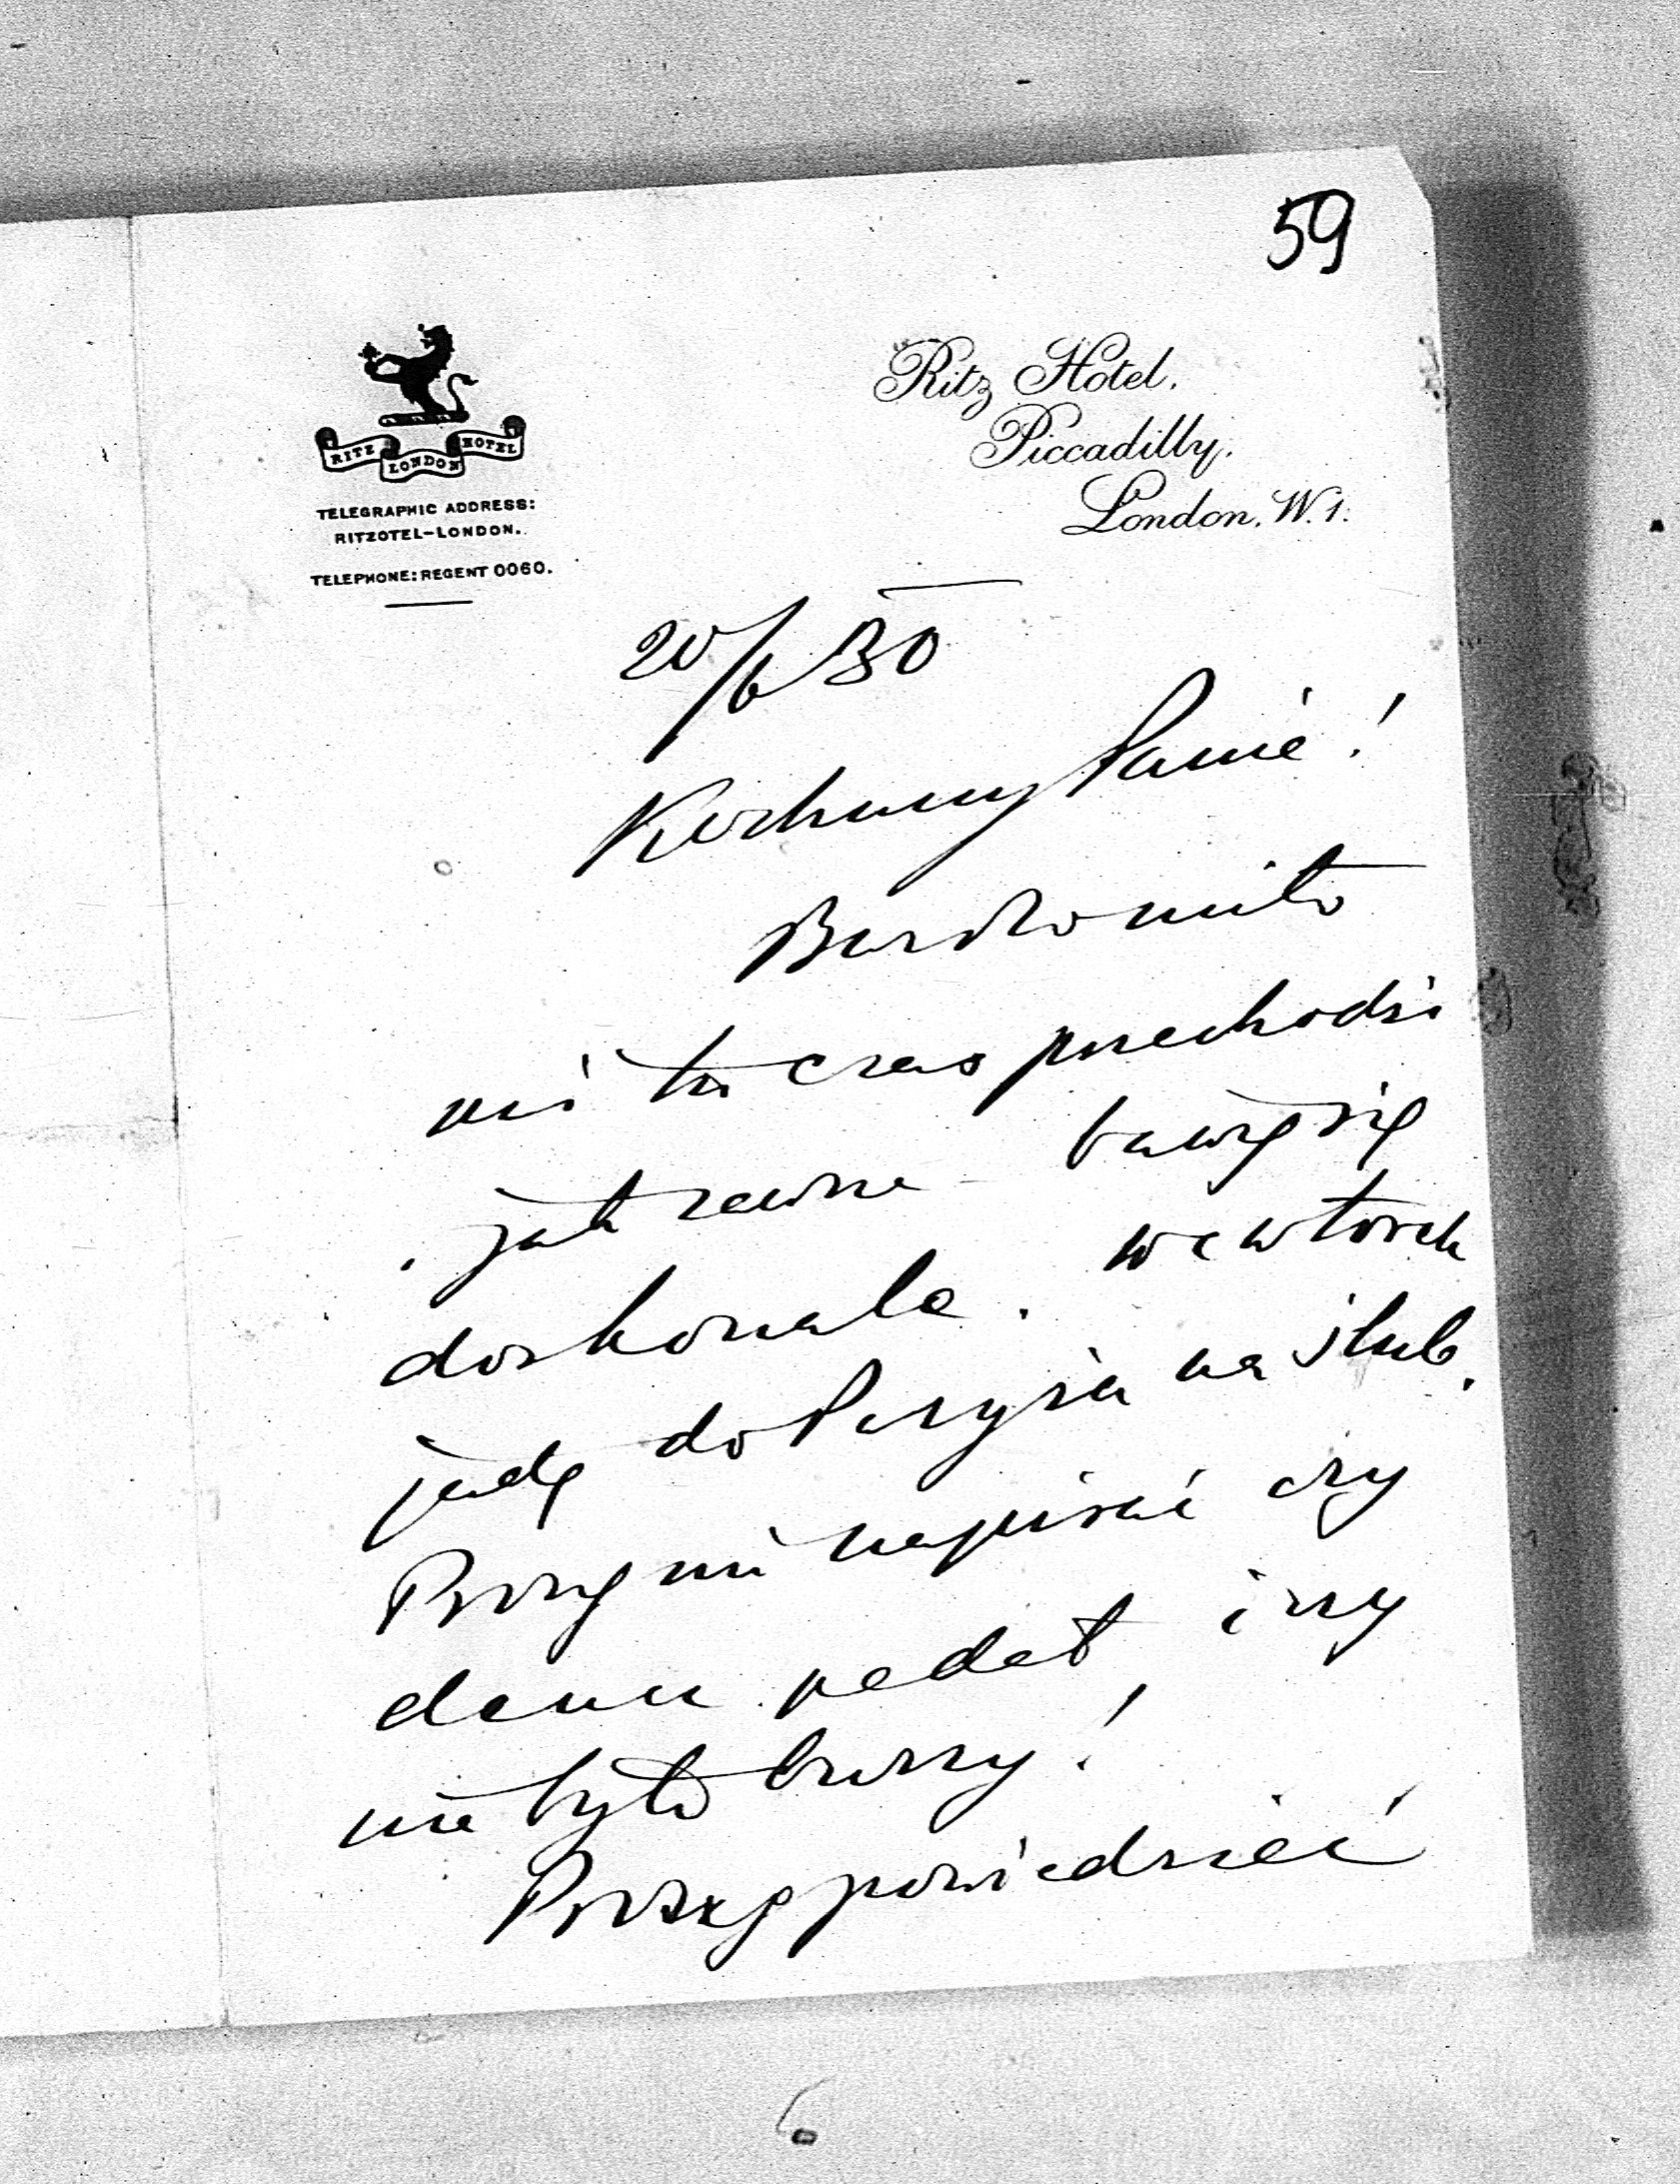 59
RITZ LONDON HOTEL
TELEGRAPHIC ADDRESS:
RITZOTEL-LONDON.
TELEPHONE: REGENT 0060.
Ritz Hotel,
Piccadilly,
London, W.1.
20/6 30
Kochany Panie!
Bardzo miło
mi tu czas przechodzi
jak zawsze bawię się
doskonale. we wtorek
jadę do Paryża na ślub.
Proszę mi napisać czy
deszcz padał i czy
nie było burzy!
Proszę powiedzieć